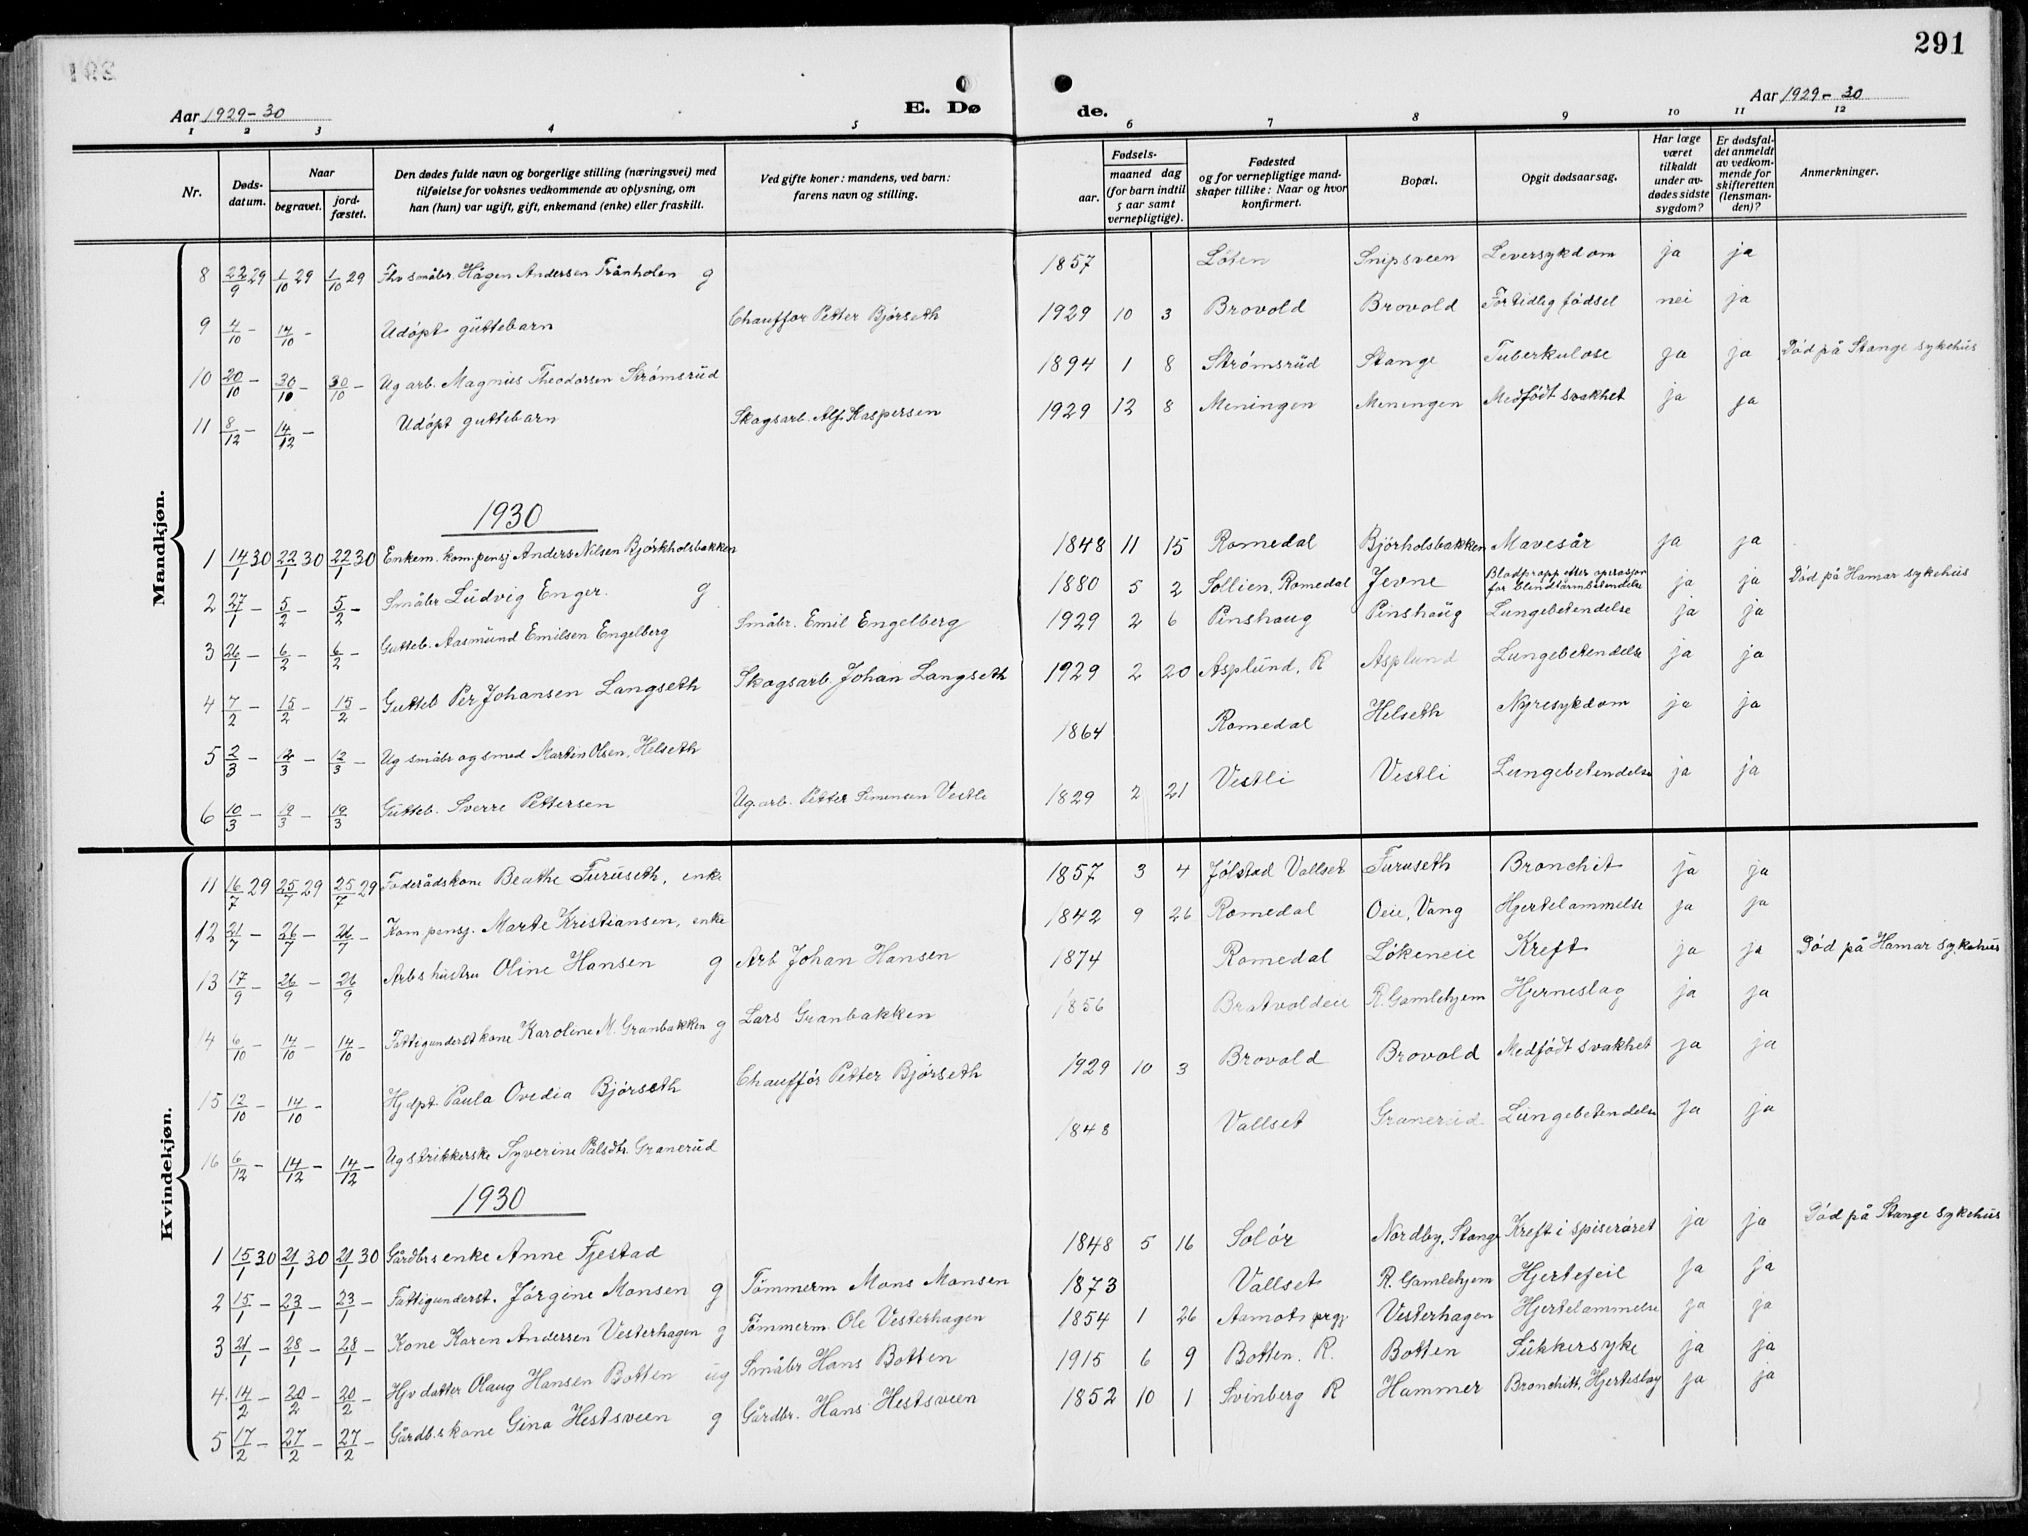 291
Aar 1929-30 E. Dø de. Aar 1929-30
1 2 3 4 5 6 7 8 9 10 11 12
Nr.
Døds-datum.
Naar
begravet.
jord-fæstet.
Den dødes fulde navn og borgerlige stilling (næringsvei) med
tilføielse for voksnes vedkommende av oplysning, om
han (hun) var ugift, gift, enkemand (enke) eller fraskilt.
Ved gifte koner: mandens, ved barn:
farens navn og stilling.
Fødsels-
aar.
maaned dag
(for barn indtil
5 aar samt
vernepligtige).
Fødested
og for vernepligtige mand-
skaper tillike: Naar og hvor
konfirmert.
Bopæl.
Opgit dødsaarsag.
Har læge
været
tilkaldt
under av-
dødes sidste
sygdom?
Er dødsfal-
det anmeldt
av vedkom-
mende for
skifteretten
(lensman-
den)?
Anmerkninger.
Mandkjøn.
8 22/9 29 1/10 29 1/10 29 Fhv småbr. Hågen Andersen Trånholen g 1857 Løten Snipsveen Leversykdom ja ja
9 4/10 - 14/10 - Udöpt guttebarn Chauffør Petter Bjørseth 1929 10 3 Brovold Brovold Fortidlig fødsel nei ja
10 20/10 - 30/10 - 30/10 - Ug arb. Magnus Theodorsen Strømsrud 1894 1 8 Strømsrud Stange Tuberkulose ja ja Død på Stange sykehus
11 8/12 - 14/12 - Udöpt guttebarn Skogsarb. Alf Kaspersen 1929 12 8 Meningen Meningen Medfødt svakhet ja ja
1930
1 14/1 30 22/1 30 22/1 30 Enkem. kom.pensj Anders Nilsen Bjørkholsbakken 1848 11 15 Romedal Bjørholsbakken Mavesår ja ja
2 27/1 - 5/2 - 5/2 - Småbr Ludvig Enger. g 1880 5 2 Sollien, Romedal Jevne Blodpropp etter operasjon for blindtarmbetendelse ja ja Død på Hamar sykehus
3 26/1 - 6/2 - 6/2 - Gutteb. Aasmund Emilsen Engelberg Småbr. Emil Engelberg 1929 2 6 Pinshaug Pinshaug Lungebetendelse ja ja
4 7/2 - 15/2 - 15/2 - Gutteb Per Johansen Langseth Skogsarb. Johan Langseth 1929 2 20 Asplund, R Asplund Lungebetendelse ja ja
5 2/3 - 12/3 - 12/3 - Ug småbr og smed Martin Olsen, Helseth 1864 Romedal Helseth Nyresykdom ja ja
6 10/3 - 19/3 - 19/3 Gutteb. Sverre Pettersen Ug. arb. Petter Simensen Vestli 1829 2 21 Vestli Vestli Lungebetendelse ja ja
Kvindekjøn.
11 16/7 29 25/7 29 25/7 29 Foderådskone Beathe Furuseth, enke 1857 3 4 Jølstad Vallset Furuseth Bronchit ja ja
12 21/7 - 26/7 - 26/7 - Kom pensj. Marte Kristiansen, enke 1842 9 26 Romedal Oeie, Vang Hjertelammelse ja ja
13 17/9 - 26/9 - 26/9 Arbs hustru Oline Hansen g Arb Johan Hansen 1874 Romedal Løkeneie Kreft ja ja Død på Hamar sykehus
14 6/10 - 14/10 - 14/10 - Fattigunderst kone Karoline M. Granbakken g Lars Granbakken 1856 Bratvoldeie R. Gamlehjem Hjerneslag ja ja
15 12/10 - 14/10 - Hjdpt. Paula Ovedia Bjørseth Chauffør Petter Bjørseth 1929 10 3 Brovold Brovold Medfødt svakhet ja ja
16 6/12 - 14/12 - 14/12 - Ug strikkerske Syverine Pålsdtr. Granerud 1848 Vallset Granerud Lungebetendelse ja ja
1930
1 15/1 30 21/1 30 21/1 30 Gårdbrs enke Anne Fjestad 1848 5 16 Solör Nordby, Stange Kreft i spiserøret ja ja Død på Stange sykehus
2 15/1 - 23/1 - 23/1 - Fattigunderst. Jörgine Monsen g Tömmerm Mons Monsen 1873 Vallset R. Gamlehjem Hjertefeil ja ja
3 21/1 - 28/1 - 28/1 - Kone Karen Andersen Vesterhagen g Tömmerm. Ole Vesterhagen 1854 1 26 Aamots prgj Vesterhagen Hjertelammelse ja ja
4. 14/2 - 20/2 - 20/2 - Hjv datter Olaug Hansen Botten ug Småbr Hans Botten 1915 6 9 Botten. R. Botten Sukkersyke ja ja
5 17/2 - 27/2 - 27/2 - Gårdb.s kone Gina Hestsveen g Gårdbr. Hans Hestsveen 1852 10 1 Svinberg R Hammer Bronchitt, Hjerteslag ja ja